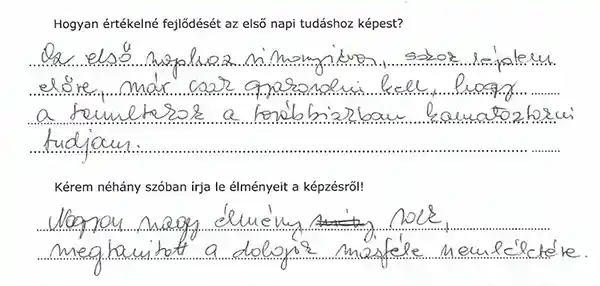 Hogyan értékelné fejlődését az első napi tudáshoz képest?
Az első naphoz viszonyítva, sokat léptem
előre, már csak gyakorolni kell, hogy
a tanultakat a továbbiakban kamatoztatni
tudjam.
Kérem néhány szóban írja le élményeit a képzésről!
Nagyon nagy élmény volt,
megtanított a dolgok másféle szemléletére.